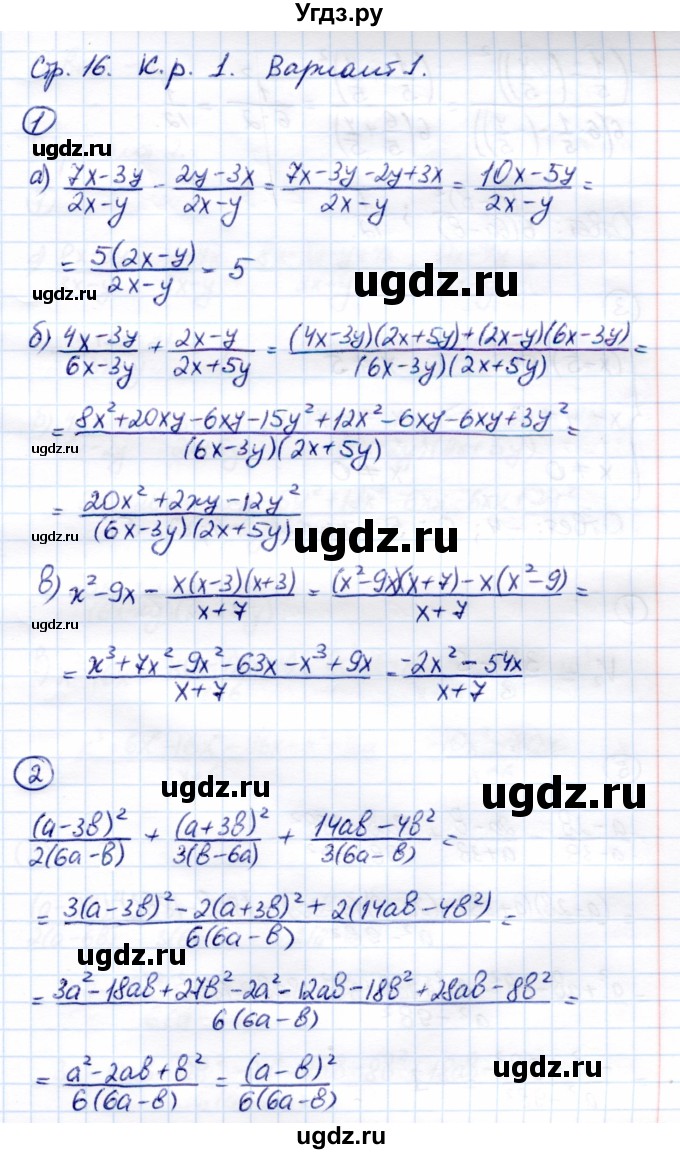 Угдз.ру
Стр. 16. К.р. 1. Вариант 1.
1
ugdz.ru
а) (7x-3y)/(2x-y) - (2y-3x)/(2x-y) = (7x-3y-2y+3x)/(2x-y) = (10x-5y)/(2x-y) =
= 5(2x-y)/(2x-y) = 5
ugdz.ru
ugdz.ru
б) (4x-3y)/(6x-3y) + (2x-y)/(2x+5y) = ((4x-3y)(2x+5y)+(2x-y)(6x-3y))/((6x-3y)(2x+5y)) =
= (8x²+20xy-6xy-15y²+12x²-6xy-6xy+3y²)/((6x-3y)(2x+5y)) =
ugdz.ru
= (20x²+2xy-12y²)/((6x-3y)(2x+5y))
ugdz.ru
ugdz.ru
в) x²-9x - x(x-3)(x+3)/(x+7) = ((x²-9x)(x+7)-x(x²-9))/(x+7) =
ugdz.ru
= (x³+7x²-9x²-63x-x³+9x)/(x+7) = (-2x²-54x)/(x+7)
2
ugdz.ru
ugdz.ru
(a-3b)²/2(6a-b) + (a+3b)²/3(b-6a) + (14ab-4b²)/3(6a-b) =
= (3(a-3b)²-2(a+3b)²+2(14ab-4b²))/6(6a-b) =
ugdz.ru
= (3a²-18ab+27b²-2a²-12ab-18b²+28ab-8b²)/6(6a-b) =
= (a²-2ab+b²)/6(6a-b) = (a-b)²/6(6a-b)
ugdz.ru
ugdz.ru